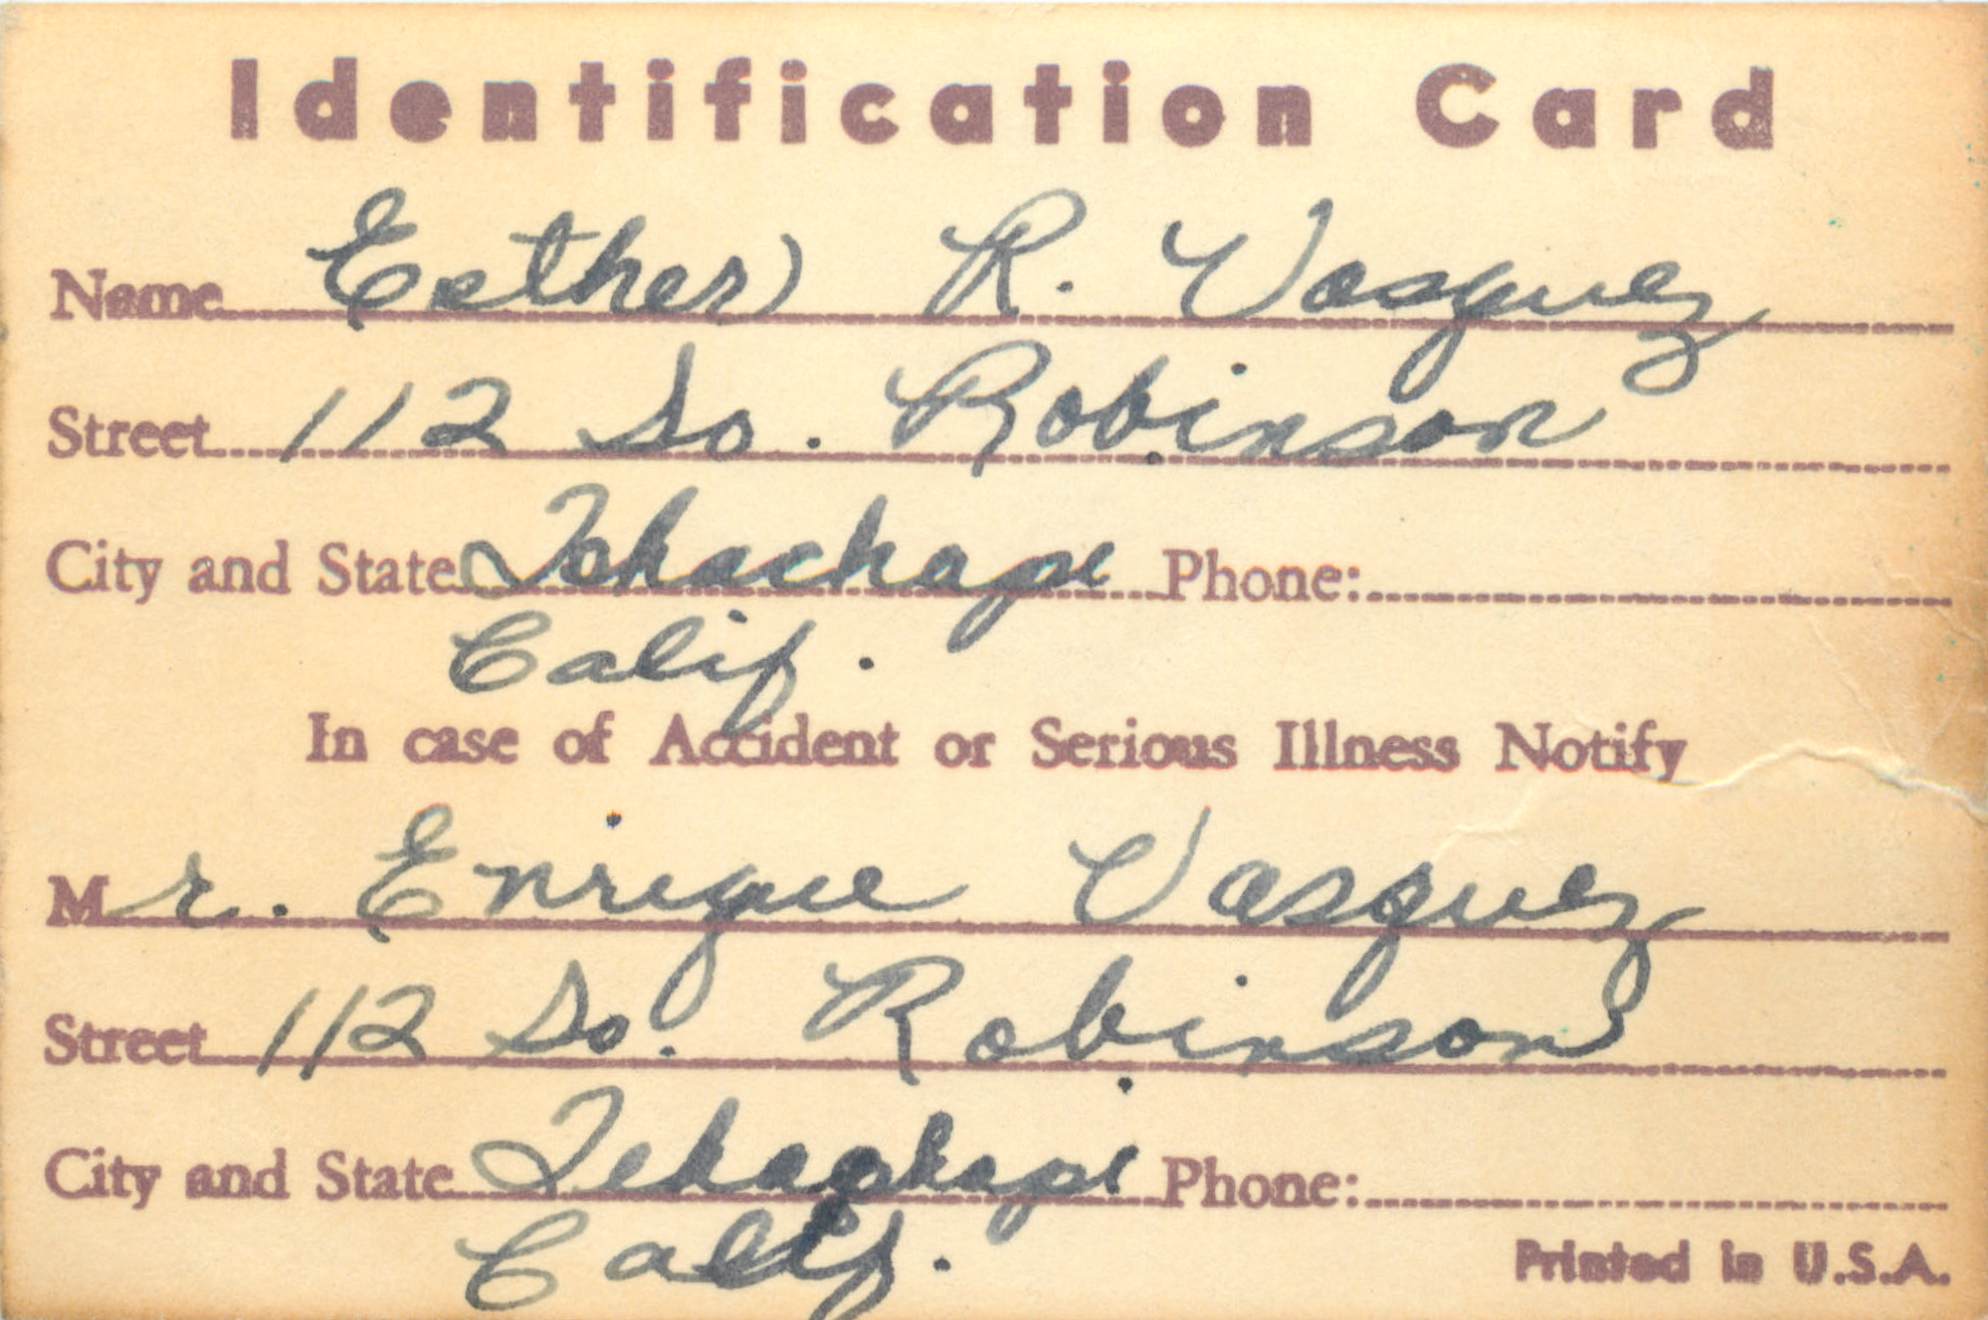 Identification Card
Name Esther R. Vasquez
Street 112 So. Robinson
City and State Tehachapi Phone:
Calif.
In case of Accident or Serious Illness Notify
Mr. Enrique Vasquez
Street 112 So. Robinson
City and State Tehachapi Phone:
Calif.
Printed in U.S.A.